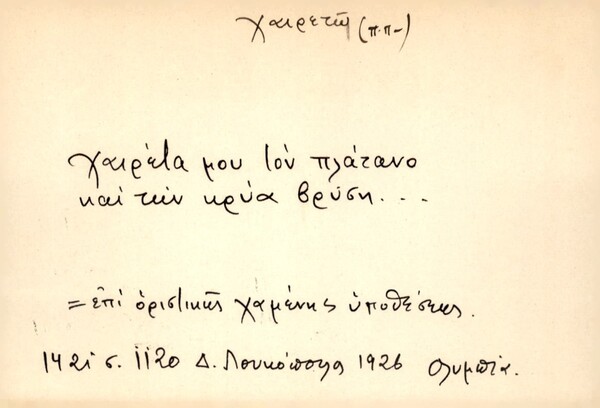 χαιρετῶ (π.π-)
χαιρέτα μου τὸν πλάτανο
καὶ τὴν κρύα βρύση...
= ἐπὶ ὁριστικῆς χαμένης ὑποθέσεως.
1421 σ. 1120 Δ. Λουκόπουλος 1926 Ολυμπία.